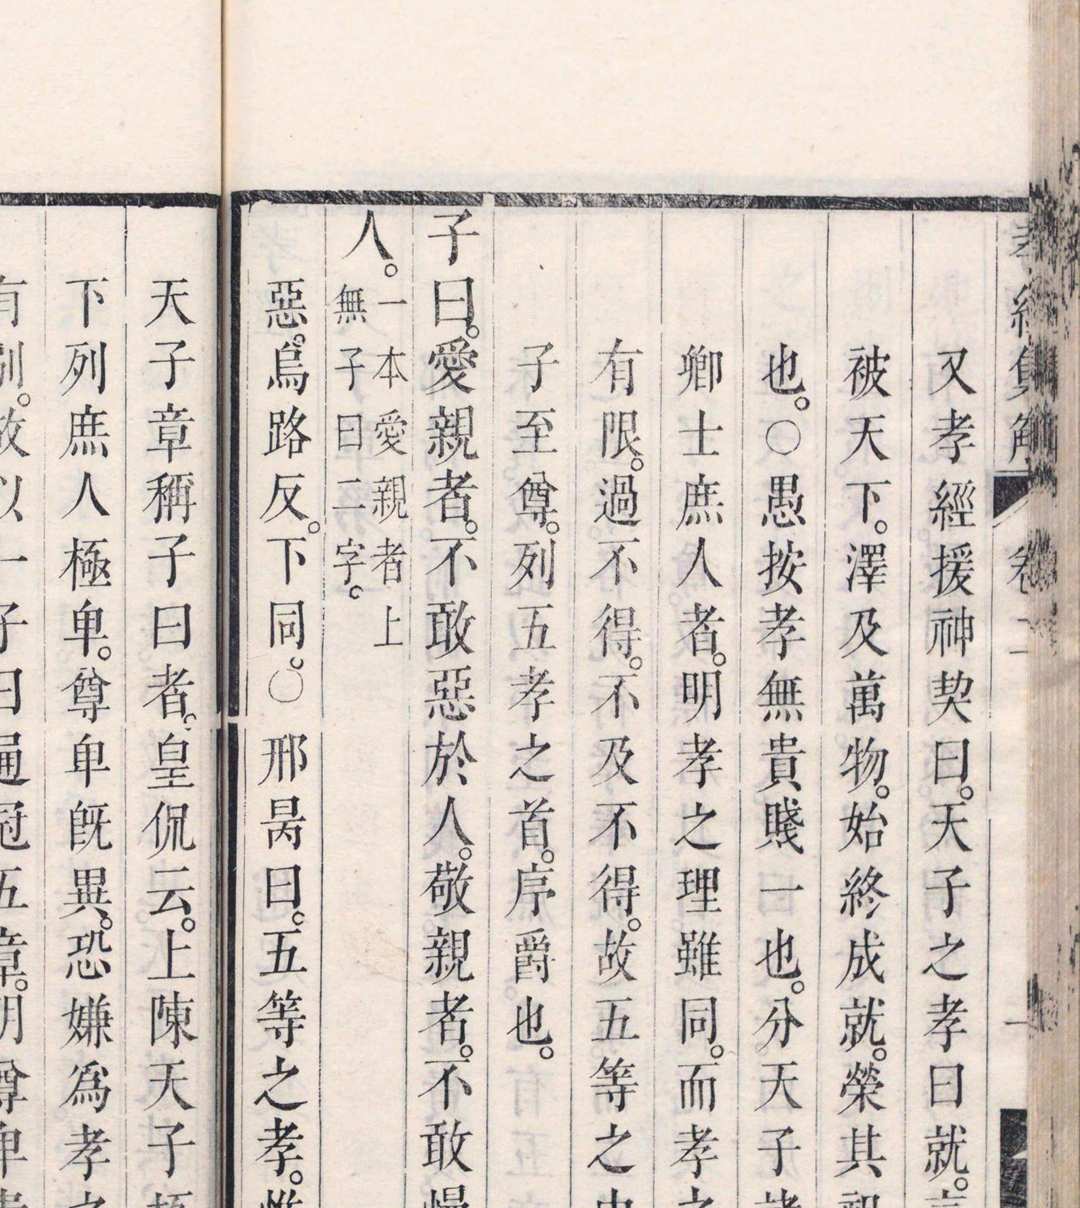 孝經集解 卷二
又孝經援神契曰。天子之孝曰就。言
被天下。澤及萬物。始終成就。榮其祖
也。○愚按孝無貴賤一也。分天子諸
卿士庶人者。明孝之理雖同。而孝之
有限。過不得。不及不得。故五等之中
子至尊。列五孝之首。序爵也。
子曰。愛親者。不敢惡於人。敬親者。不敢慢
人。
一本愛親者上
無子曰二字。
惡。烏路反。下同。○邢昺曰。五等之孝。惟
天子章稱子曰者。皇侃云。上陳天子極
下列庶人極卑。尊卑既異。恐嫌爲孝之
有別。故以一子曰通冠五章。明尊卑貴